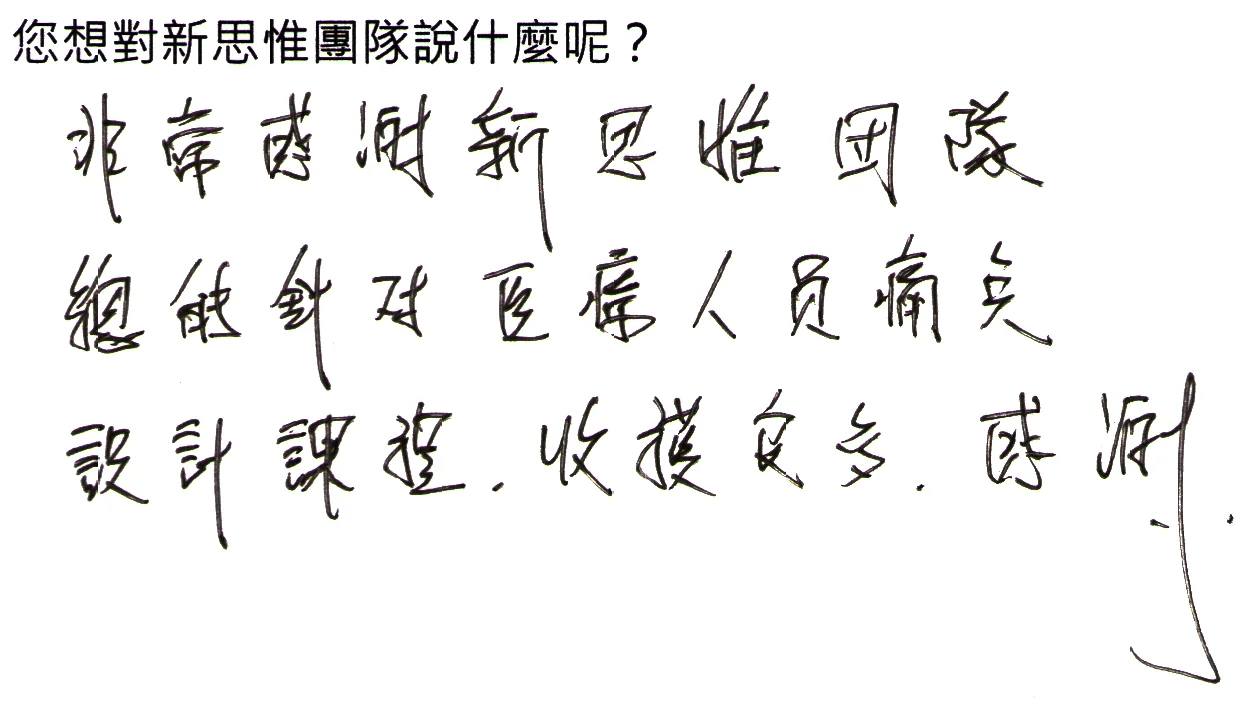 您想對新思惟團隊說什麼呢？
非常感謝新思惟团隊
總能針对医療人员痛点
設計課程，收獲良多，感謝